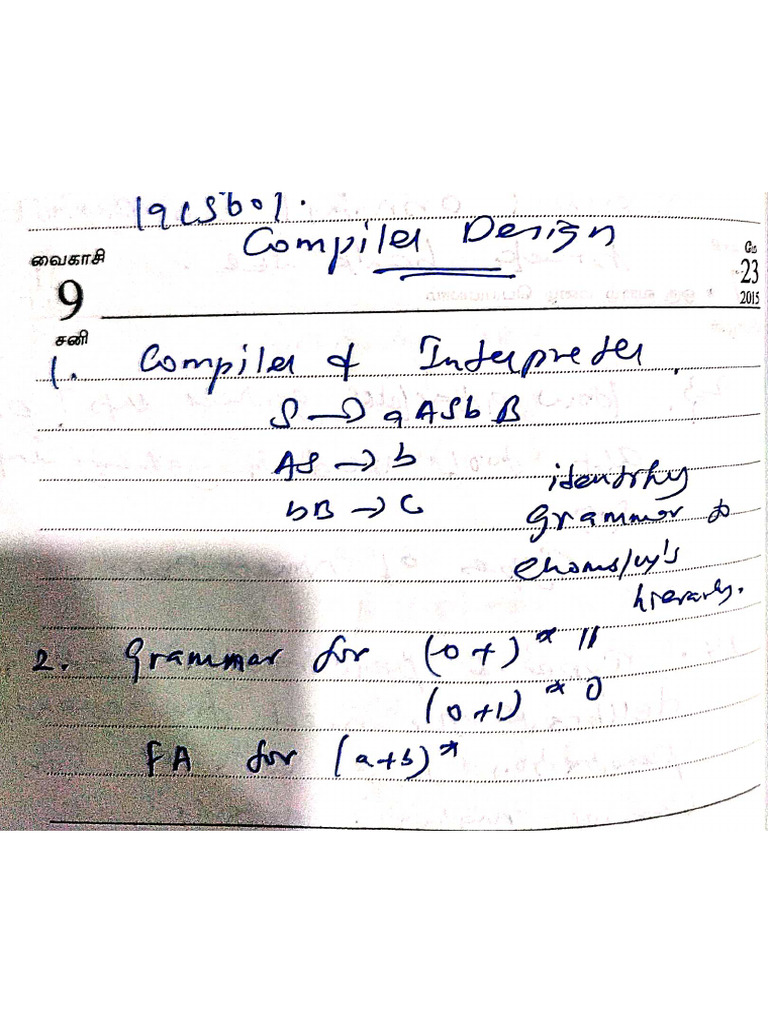 19CSb01.
Compiler Design
வைகாசி
9
சனி
மே
23
2015
1. Compiler & Interpreter.
S → aASbB
AS → b
bB → C
identify
grammar &
chomsky's
hierarchy.
2. Grammar for (0+)* 11
(0+1)* 0
FA for (a+b)*